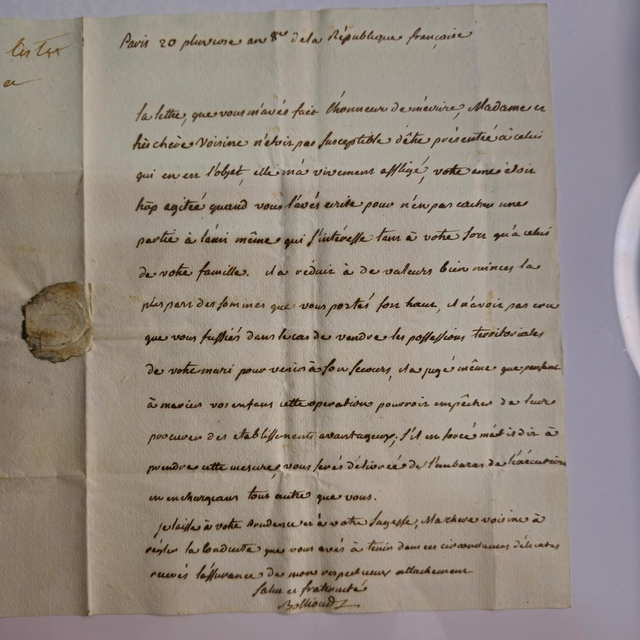 Paris 20 pluviose an 8me de la République française
la lettre, que vous m'avés fait l'honneur de m'écrire, Madame et
très chère Voisine n'étoit pas susceptible d'être présentée à celui
qui en est l'objet, elle m'a vivement affligé, votre ame étoit
trop agitée quand vous l'avés écrite pour n'en pas cacher une
partie à l'ami même qui s'intéresse tant à votre sort qu'à celui
de votre famille. il a réduit à de valeurs bien minces la
plus part des sommes que vous portés fort haut, il n'avoit pas cru
que vous fussiés dans le cas de vendre les possessions territoriales
de votre mari pour venir à son secours, il a jugé même que pensant
à marier vos enfans cette operation pourroit empêcher de leur
procurer des etablissements avantageux; s'il en forcé m'at-il dit à
prendre cette mesure, vous serés délivrée de l'embaras de l'exécution
en en chargeant tout autre que vous.
je laisse à votre prudence et à votre sagesse, Ma chere voisine à
régler la Conduite que vous avés à tenir dans ces circonstances délicates
recevés l'assurance de mon respectueux attachement
Salut et fraternité